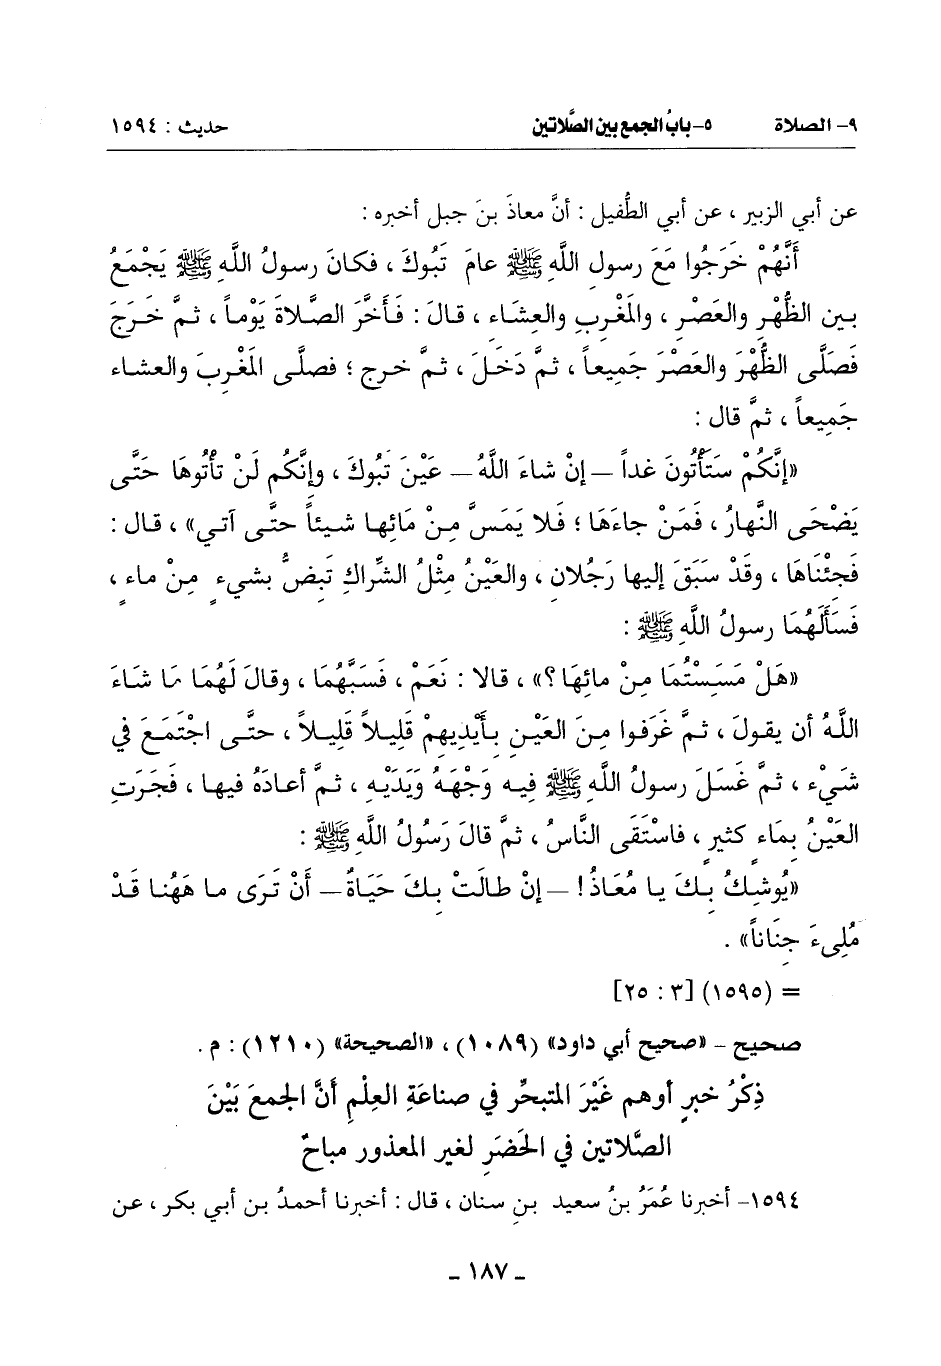 ٩- الصلاة ٥- بابُ الجمع بين الصَّلاتين حديث : ١٥٩٤
عن أبي الزبير ، عن أبي الطُّفيل : أنَّ معاذَ بنَ جبل أخبره :
أَنَّهُمْ خَرَجُوا مَعَ رسولِ اللَّهِ ﷺ عامَ تَبُوكَ ، فكانَ رسولُ اللَّهِ ﷺ يَجْمَعُ
بين الظُّهْرِ والعَصْرِ ، والمَغْرِبِ والعِشَاءِ ، قالَ : فَأَخَّرَ الصَّلاةَ يَوْماً ، ثمَّ خَرَجَ
فَصَلَّى الظُّهْرَ والعَصْرَ جَمِيعاً ، ثمَّ دَخَلَ ، ثمَّ خرج ؛ فصلَّى المَغْرِبَ والعشاء
جَمِيعاً ، ثمَّ قال :
«إنَّكُمْ سَتَأْتُونَ غداً – إنْ شاءَ اللَّهُ – عَيْنَ تَبُوكَ ، وإنَّكُم لَنْ تأتُوهَا حَتَّى
يَضْحَى النَّهارُ ، فَمَنْ جاءَهَا ؛ فَلا يَمَسَّ مِنْ مَائِها شيئاً حتَّى آتي» ، قال :
فَجِئْنَاهَا ، وقَدْ سَبَقَ إليها رَجُلانِ ، والعَيْنُ مِثْلُ الشِّراكِ تَبِضُّ بشيءٍ مِنْ ماءٍ ،
فَسَأَلَهُمَا رسولُ اللَّهِ ﷺ :
«هَلْ مَسَِسْتُمَا مِنْ مائِهَا ؟» ، قالا : نَعَمْ ، فَسَبَّهُمَا ، وقالَ لَهُمَا مَا شاءَ
اللَّهُ أن يقولَ ، ثمَّ غَرَفوا مِنَ العَيْنِ بأَيْدِيهِمْ قَلِيلاً قَلِيلاً ، حتَّى اجْتَمَعَ في
شَيْءٍ ، ثمَّ غَسَلَ رسولُ اللَّهِ ﷺ فِيهِ وَجْهَهُ وَيَدَيْهِ ، ثمَّ أعادَهُ فيها ، فَجَرَتِ
العَيْنُ بِمَاءٍ كثيرٍ ، فاسْتَقَى النَّاسُ ، ثمَّ قالَ رَسُولُ اللَّهِ ﷺ :
«يُوشِكُ بِكَ يا مُعَاذُ ! – إنْ طالَتْ بِكَ حَيَاةٌ – أَنْ تَرَى ما هَهُنا قَدْ
مُلِىءَ جِنَاناً» .
= (١٥٩٥) [٣ : ٢٥]
صحيح – «صحيح أبي داود» (١٠٨٩) ، «الصحيحة» (١٢١٠) : م .
ذِكْرُ خبرٍ أوهم غَيْرَ المتبحِّر في صناعَةِ العِلْمِ أنَّ الجمعَ بَيْنَ
الصَّلاتين في الحَضَرِ لغير المعذور مباحٌ
١٥٩٤- أخبرنا عُمَرُ بنُ سعيد بنِ سنان ، قال : أخبرنا أحمدُ بن أبي بكر ، عن
ـ ١٨٧ ـ